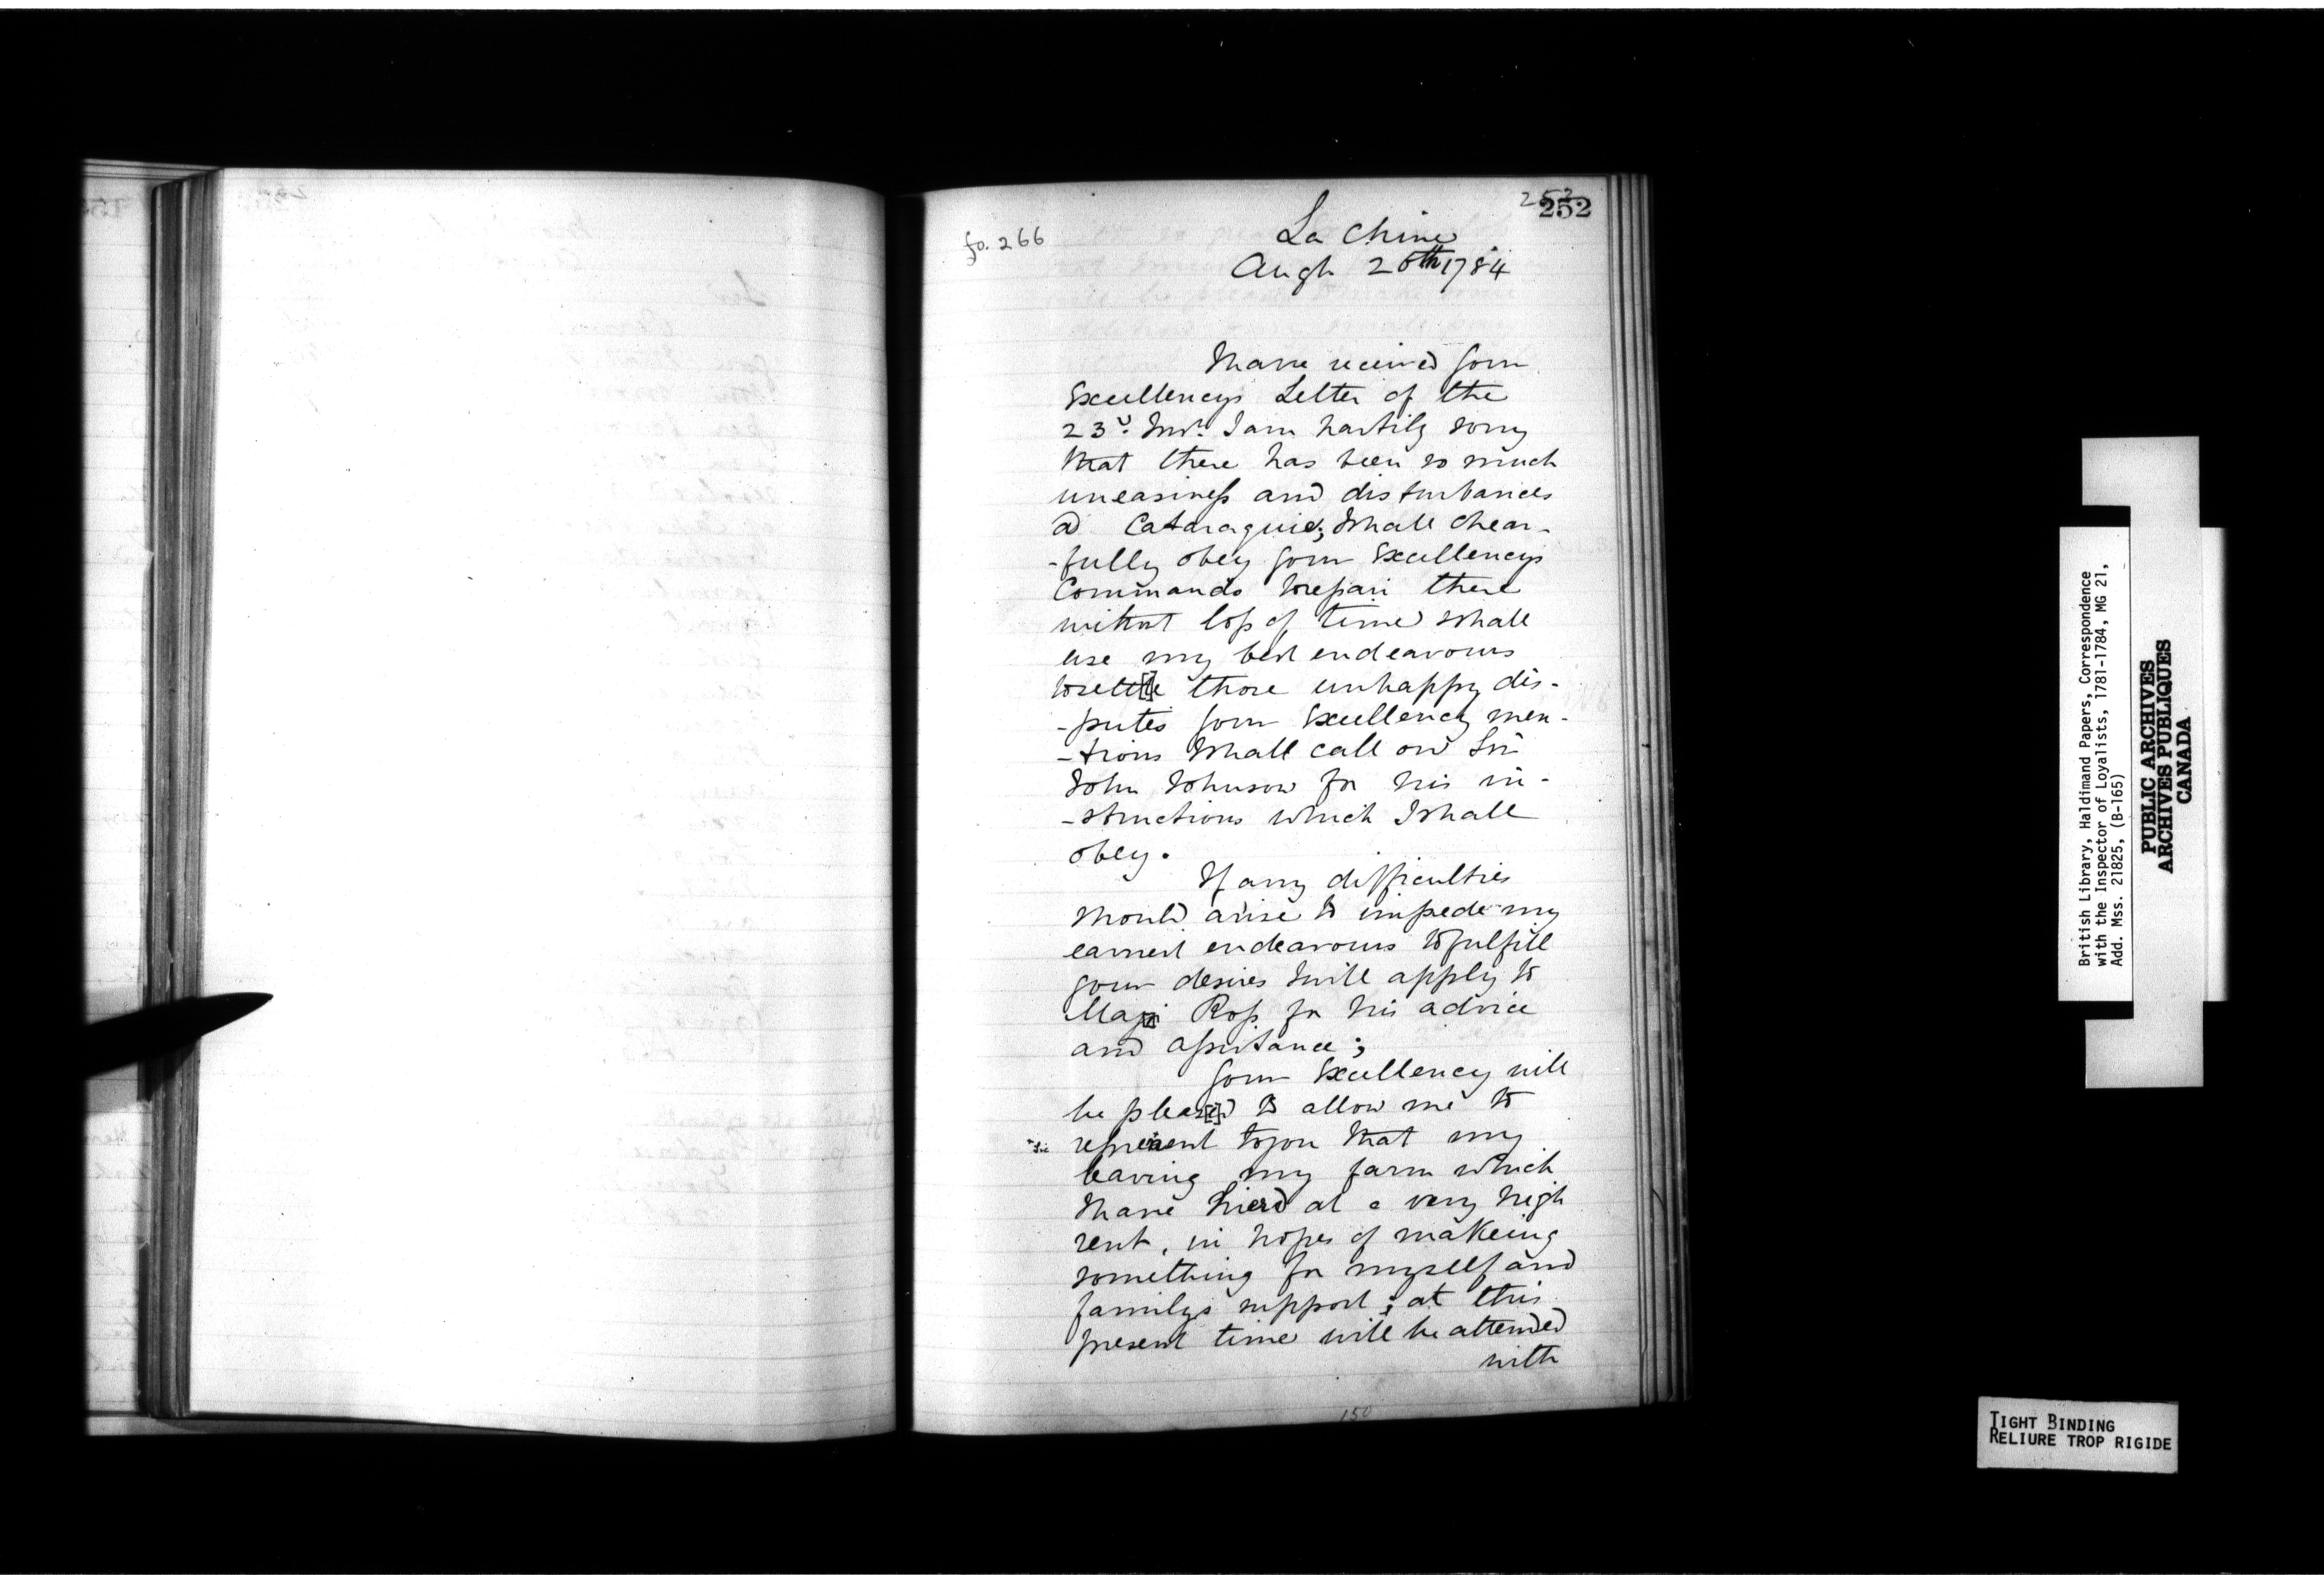 252
252
fo. 266
La Chine
Augt 26th 1784
I have received your
Excellencys Letter of the
23d. Inst. I am hartily sorry
that there has been so much
uneasiness and disturbances
a Cataraquie; I shall chear-
-fully obey your Excellencys
Commands to repair there
without loss of time I shall
use my best endeavours
to sett[l]e those unhappy dis-
-putes your Excellency men-
-tions I shall call on Sir
John Johnson for his in-
-structions which I shall
obey.
If any difficulties
should arise to impede my
earnest endeavours to fulfill
your desires I will apply to
Major Ross for his advice
and assistance;
Your Excellency will
be pleas[e]d to allow me to
Sic represent to you that my
leaving my farm which
I have hierd at a very high
rent, in hopes of makeing
something for myself and
familys support; at this
present time will be attended
with
150
British Library, Haldimand Papers, Correspondence
with the Inspector of Loyalists, 1781-1784, MG 21,
Add. Mss. 21825, (B-165)
PUBLIC ARCHIVES
ARCHIVES PUBLIQUES
CANADA
TIGHT BINDING
RELIURE TROP RIGIDE